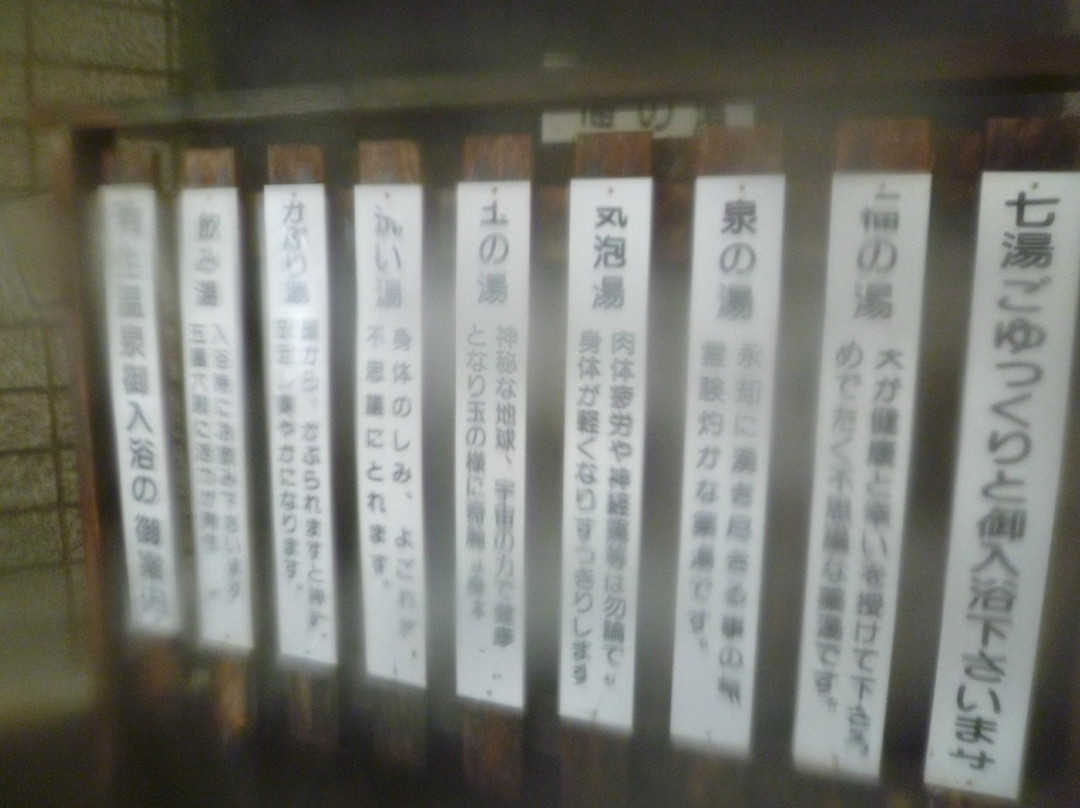 七湯ごゆっくりと御入浴下さいませ
福の湯
天が健康と幸いを授けて下さる
めでたく不思議な薬湯です。
泉の湯
永却に湧き尽きる事の無
霊験灼かな薬湯です。
気泡湯
肉体疲労や神経痛等は勿論で
身体が軽くなりすっきりします
の湯
神秘な地球、宇宙の力で健康
となり玉の様に
洗い湯
身体のしみ、よごれが
不思議にとれます。
かぶり湯
頭から、かぶられますと神
し爽やかになります。
飲み湯
入浴後にお飲み下さいます
五臓六腑に活力が
温泉御入浴の御案内
の湯